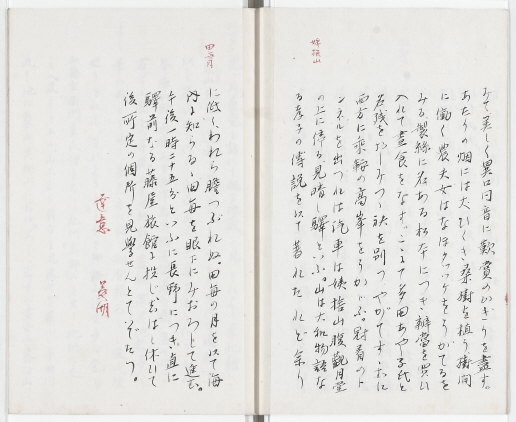 姨捨山
みて美しく異口同音に歎賞のかぎりを盡す。
あたりの畑には大むぎ桑樹を植う樹間
に働く農夫女はなほ をうがてるを
みる製絲に名ある松本につき辨當を買ひ
入れて晝食をなす。こゝにて多田あや子氏と
名残をおしみつゝ袂を別つやがてすゝむに
西方に乘鞍の高峯をうかぶ。冠着のト
ンネルを出づれば汽車は姨捨山腹觀月堂
の上に停る見晴し驛といふ。山は大和物語な
る孝子の傳説を以て著れたれど余り
田毎月
に低くわれら膽つぶれぬ。田毎の月を以て海
内に知らるゝ田毎を眼下にみおろして進む。
午後一時二十五分といふに長野につき直に
驛前なる藤屋旅館に投じしばし休いて
後所定の個所を見學せんとていでたつ。